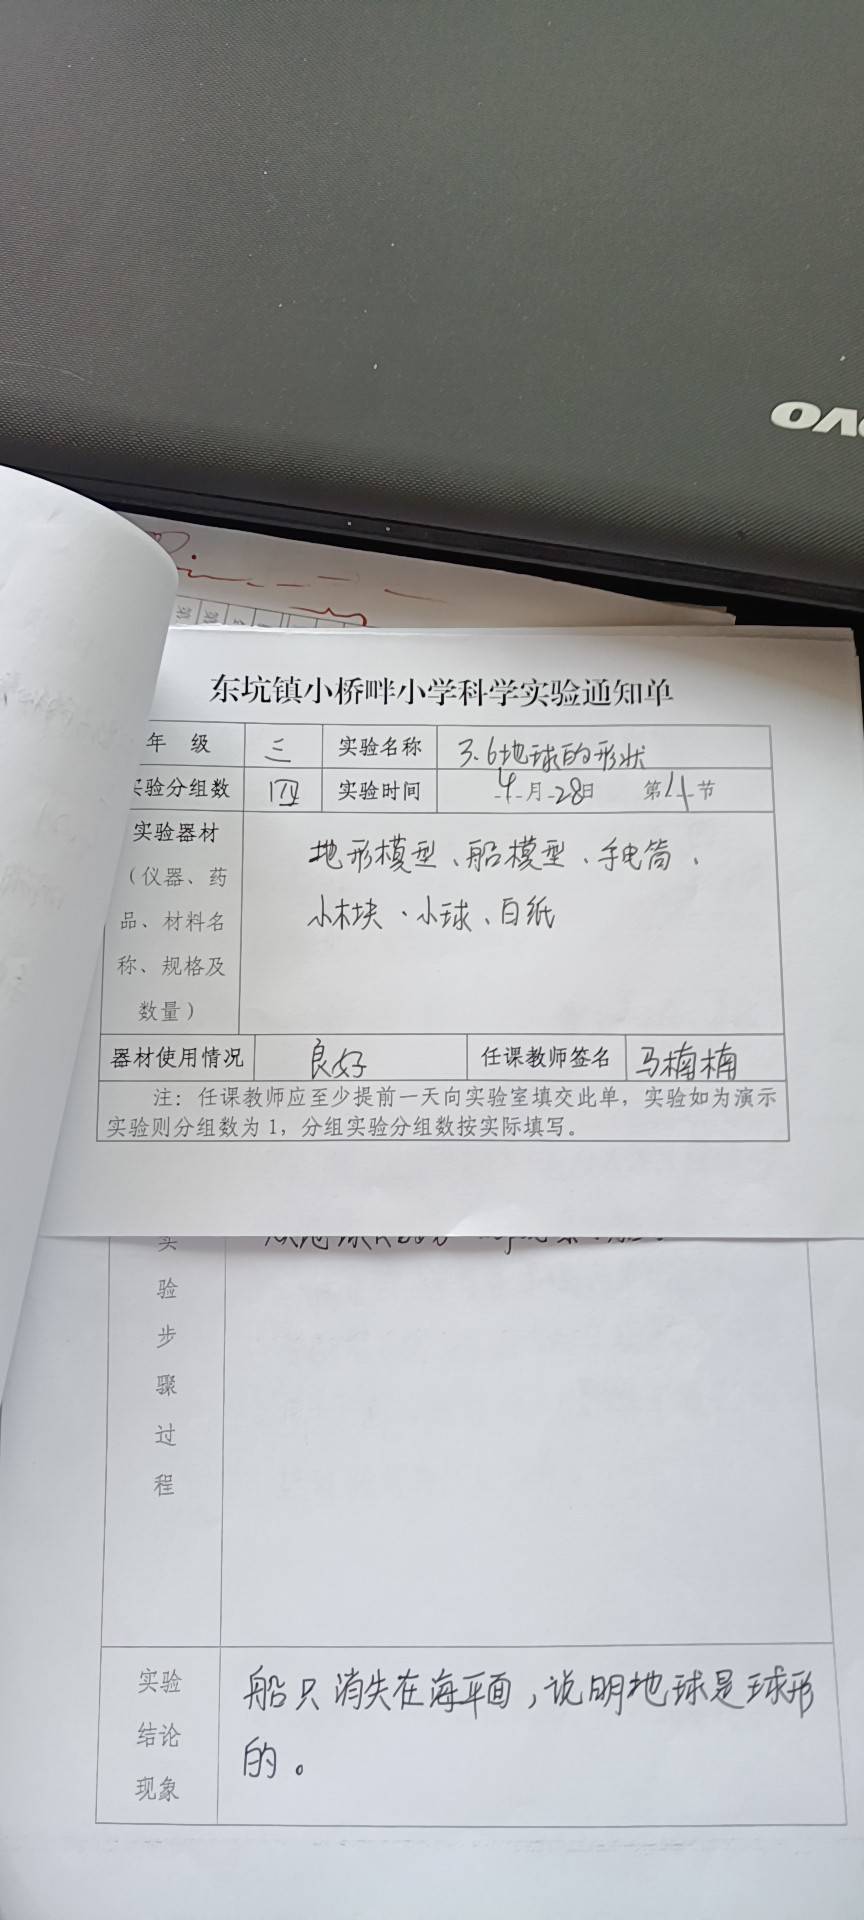 东坑镇小桥畔小学科学实验通知单
年 级 三 实验名称 3.6地球的形状
实验分组数 四 实验时间 4月28日 第4节
实验器材 地形模型、船模型、手电筒、
（仪器、药
品、材料名 小木块、小球、白纸
称、规格及
数量）
器材使用情况 良好 任课教师签名 马楠楠
注：任课教师应至少提前一天向实验室填交此单，实验如为演示
实验则分组数为1，分组实验分组数按实际填写。
实
验
步
骤
过
程
实验 船只消失在海平面，说明地球是球形
结论 的。
现象